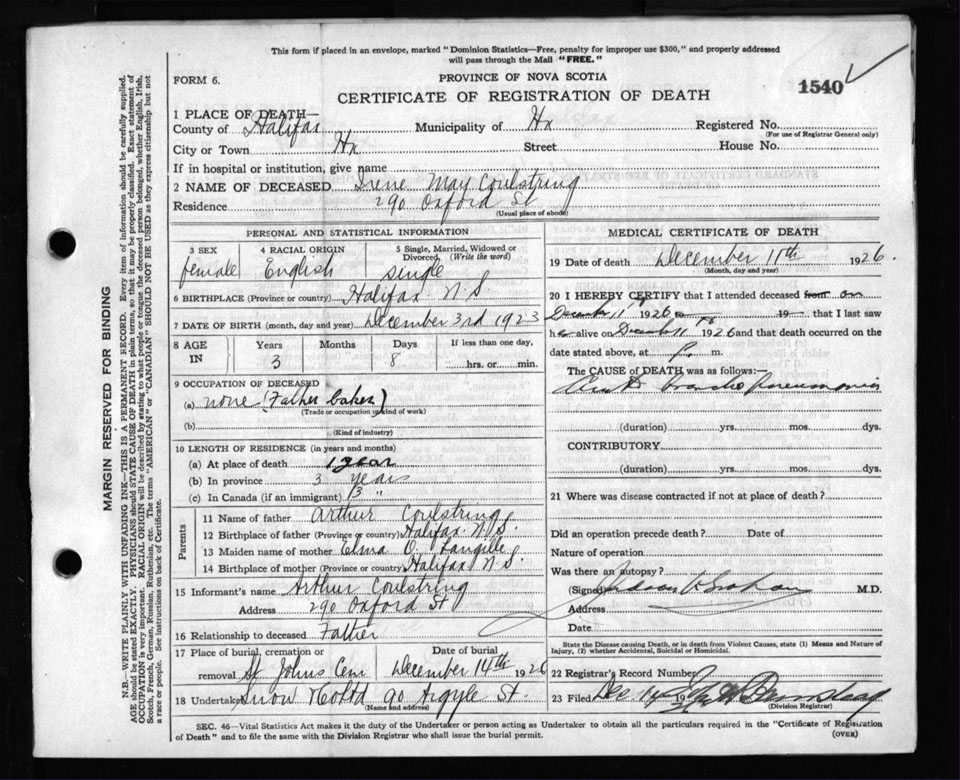 This form if placed in an envelope, marked "Dominion Statistics—Free, penalty for improper use $300," and properly addressed
will pass through the Mail "FREE."
FORM 6.
PROVINCE OF NOVA SCOTIA
1540
CERTIFICATE OF REGISTRATION OF DEATH
1 PLACE OF DEATH—
County of Halifax Municipality of Hx Registered No.
(For use of Registrar General only)
City or Town Hx Street House No.
If in hospital or institution, give name
2 NAME OF DECEASED Irene May Coulstring
Residence 290 Oxford St
(Usual place of abode)
PERSONAL AND STATISTICAL INFORMATION
3 SEX 4 RACIAL ORIGIN 5 Single, Married, Widowed or
Divorced. (Write the word)
female English single
6 BIRTHPLACE (Province or country) Halifax N.S
7 DATE OF BIRTH (month, day and year) December 3rd 1923
8 AGE Years Months Days If less than one day,
IN 3 8 hrs. or min.
9 OCCUPATION OF DECEASED
(a) none (Father baker)
(Trade or occupation or kind of work)
(b)
(Kind of industry)
10 LENGTH OF RESIDENCE (in years and months)
(a) At place of death 1 year
(b) In province 3 years
(c) In Canada (if an immigrant) 3 "
Parents
11 Name of father Arthur Coulstring
12 Birthplace of father (Province or country) Halifax N.S.
13 Maiden name of mother Elma O. Langille
14 Birthplace of mother (Province or country) Halifax N.S
15 Informant's name Arthur Coulstring
Address 290 Oxford St
16 Relationship to deceased Father
17 Place of burial, cremation or Date of burial
removal St Johns Cem December 14th 1926
18 Undertaker Snow & Co Ltd 90 Argyle St.
(Name and address)
MEDICAL CERTIFICATE OF DEATH
19 Date of death December 11th 1926.
(Month, day and year)
20 I HEREBY CERTIFY that I attended deceased from on
December 11th 1926 to 19 that I last saw
her alive on December 11th 1926 and that death occurred on the
date stated above, at P. m.
The CAUSE of DEATH was as follows:—
Acute broncho pneumonia
(duration) yrs. mos. dys.
CONTRIBUTORY
(duration) yrs. mos. dys.
21 Where was disease contracted if not at place of death?
Did an operation precede death? Date of
Nature of operation
Was there an autopsy?
(Signed) Graham M.D.
Address
Date
State the Disease causing Death, or in death from Violent Causes, state (1) Means and Nature of
Injury, (2) whether Accidental, Suicidal or Homicidal.
22 Registrar's Record Number
23 Filed Dec 14 19
(Division Registrar)
SEC. 46—Vital Statistics Act makes it the duty of the Undertaker or person acting as Undertaker to obtain all the particulars required in the "Certificate of Registration
of Death" and to file the same with the Division Registrar who shall issue the burial permit.
(OVER)
MARGIN RESERVED FOR BINDING
N.B.—WRITE PLAINLY WITH UNFADING INK—THIS IS A PERMANENT RECORD. Every item of information should be carefully supplied.
AGE should be stated EXACTLY. PHYSICIANS should STATE CAUSE OF DEATH in plain terms, so that it may be properly classified. Exact statement of
OCCUPATION is very important. RACIAL ORIGIN will be described by stating to what people or tongue the deceased person belonged, whether English, Irish,
Scotch, French, German, Russian, Ruthenian, etc. The terms "AMERICAN" or "CANADIAN" SHOULD NOT BE USED as they express citizenship but not
a race or people. See instructions on back of Certificate.